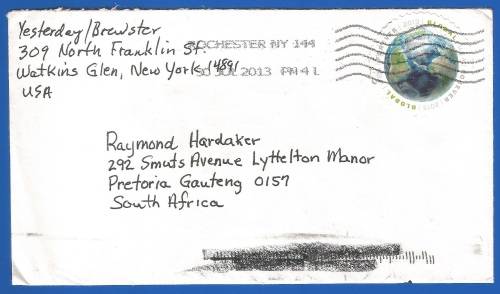 Yesterday/Brewster
309 North Franklin St.
Watkins Glen, New York 14891
USA
ROCHESTER NY 144
30 JUL 2013 PM 4 L
FOREVER 2013 GLOBAL
FOREVER 2013 GLOBAL
Raymond Hardaker
292 Smuts Avenue Lyttelton Manor
Pretoria Gauteng 0157
South Africa